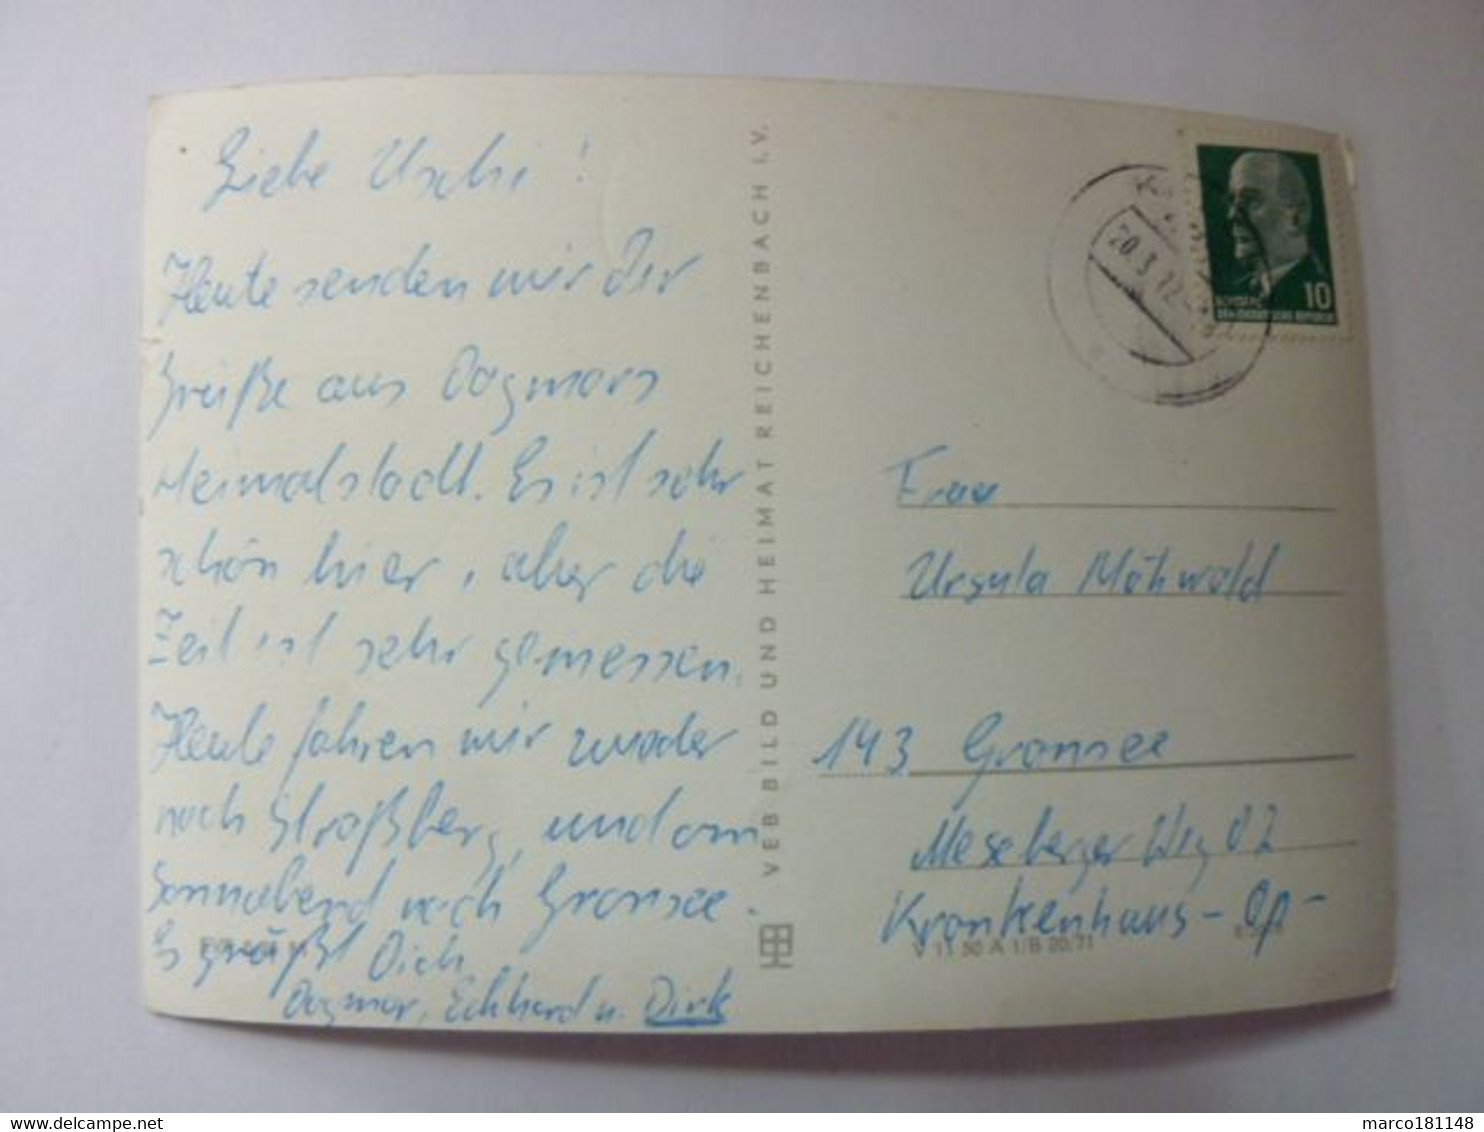 Liebe Uschi!
Heute senden wir Dir
Grüße aus Dagmars
Heimatstadt. Es ist sehr
schön hier, aber die
Zeit ist sehr gemessen.
Heute fahren wir wieder
nach Straßberg, und am
Sonnabend nach Gransee.
Es grüßt Dich
Dagmar, Eckhard u. Dirk
VEB BILD UND HEIMAT REICHENBACH I. V.
20.3.72
10
DEUTSCHE DEMOKRATISCHE REPUBLIK
Frau
Ursula Möhwald
143 Gransee
Meseberger Weg 02
Krankenhaus - Op -
V 11 50 A 1/B 20/71
marco181148